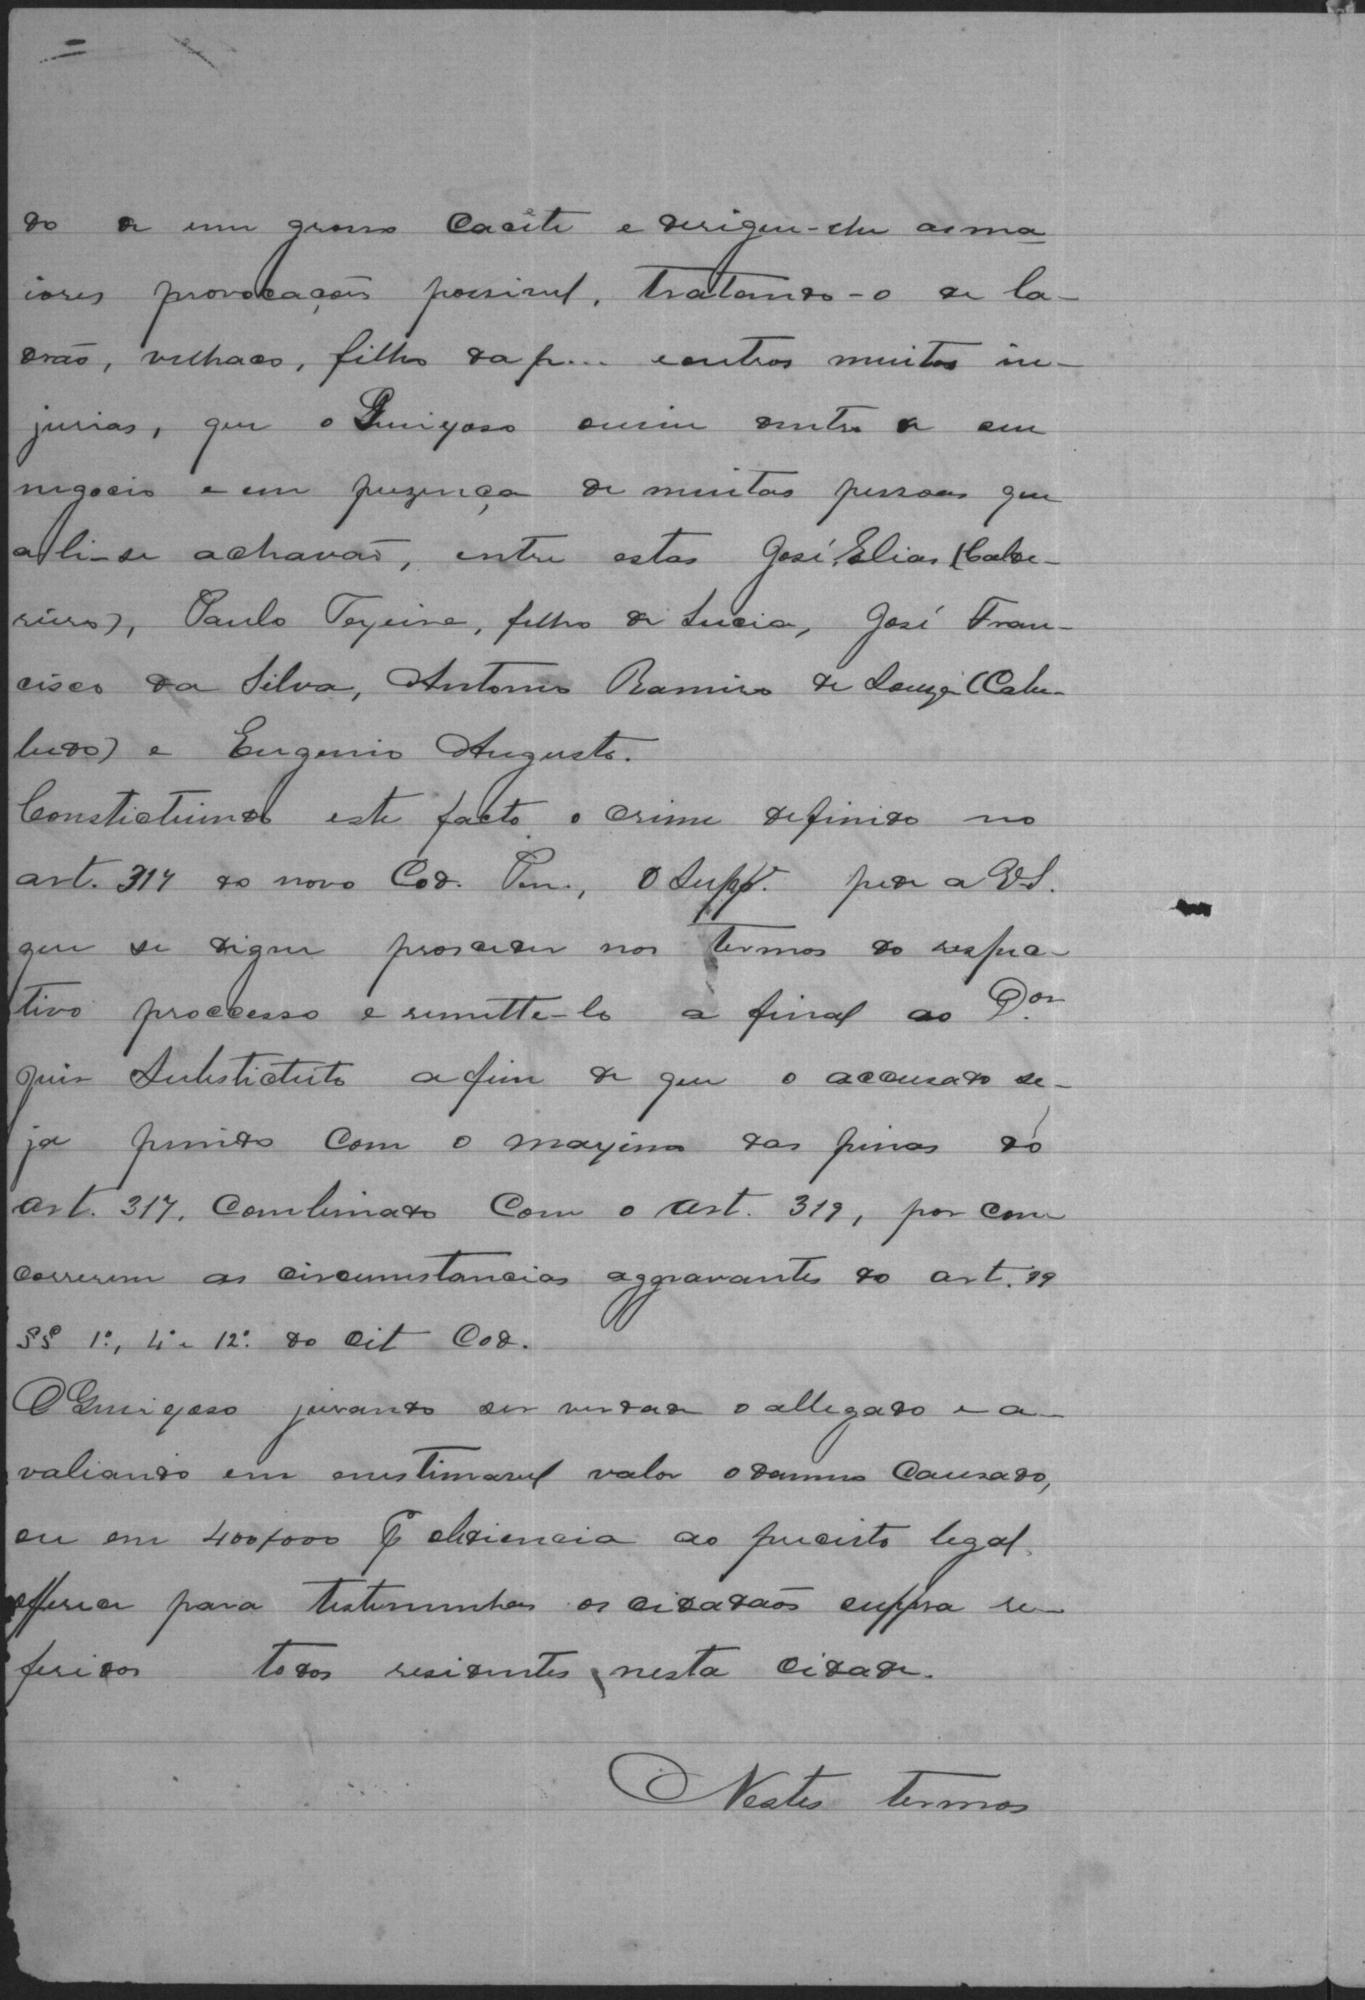 do de um grosso cacête e derigeu-lhe as ma
iores provocações possivel, tratando-o de la-
drão, velhaco, filho da p... e outras muitas in-
jurias, que o Queixoso ouviu dentro de seu
negocio e em prezença de muitas pessoas que
ali-se achavaõ, entre estas José Elias (Calde-
reiro), Paulo Teixeira, filho de Lucia, José Fran-
cisco da Silva, Antonio Ramiro de Souza (Cabe-
ludo) e Eugenio Augusto.
Constictuindo este facto o crime definido no
art. 317 do novo Cod. Pen., O Supp.e pede a V.S.
que se digne proceder nos termos do respec-
tivo proccesso e remette-lo a final ao D.or
Juiz Substictuto afim de que o accusado se-
ja punido com o maximo das pinas do
art. 317, combinado com o art. 319, por con
correrem as circumstancias aggravantes do art. 39
§§ 1º, 4º e 12º do cit Cod.
O Queixoso jurando ser verdade o allegado e a-
valiando em enestimavel valor o damno causado,
ou em 400$000 em obdiencia ao preceito legal,
offerece para testemunhas os cidadãos suppra re-
feridos todos residentes nesta cidade.
Nestes termos